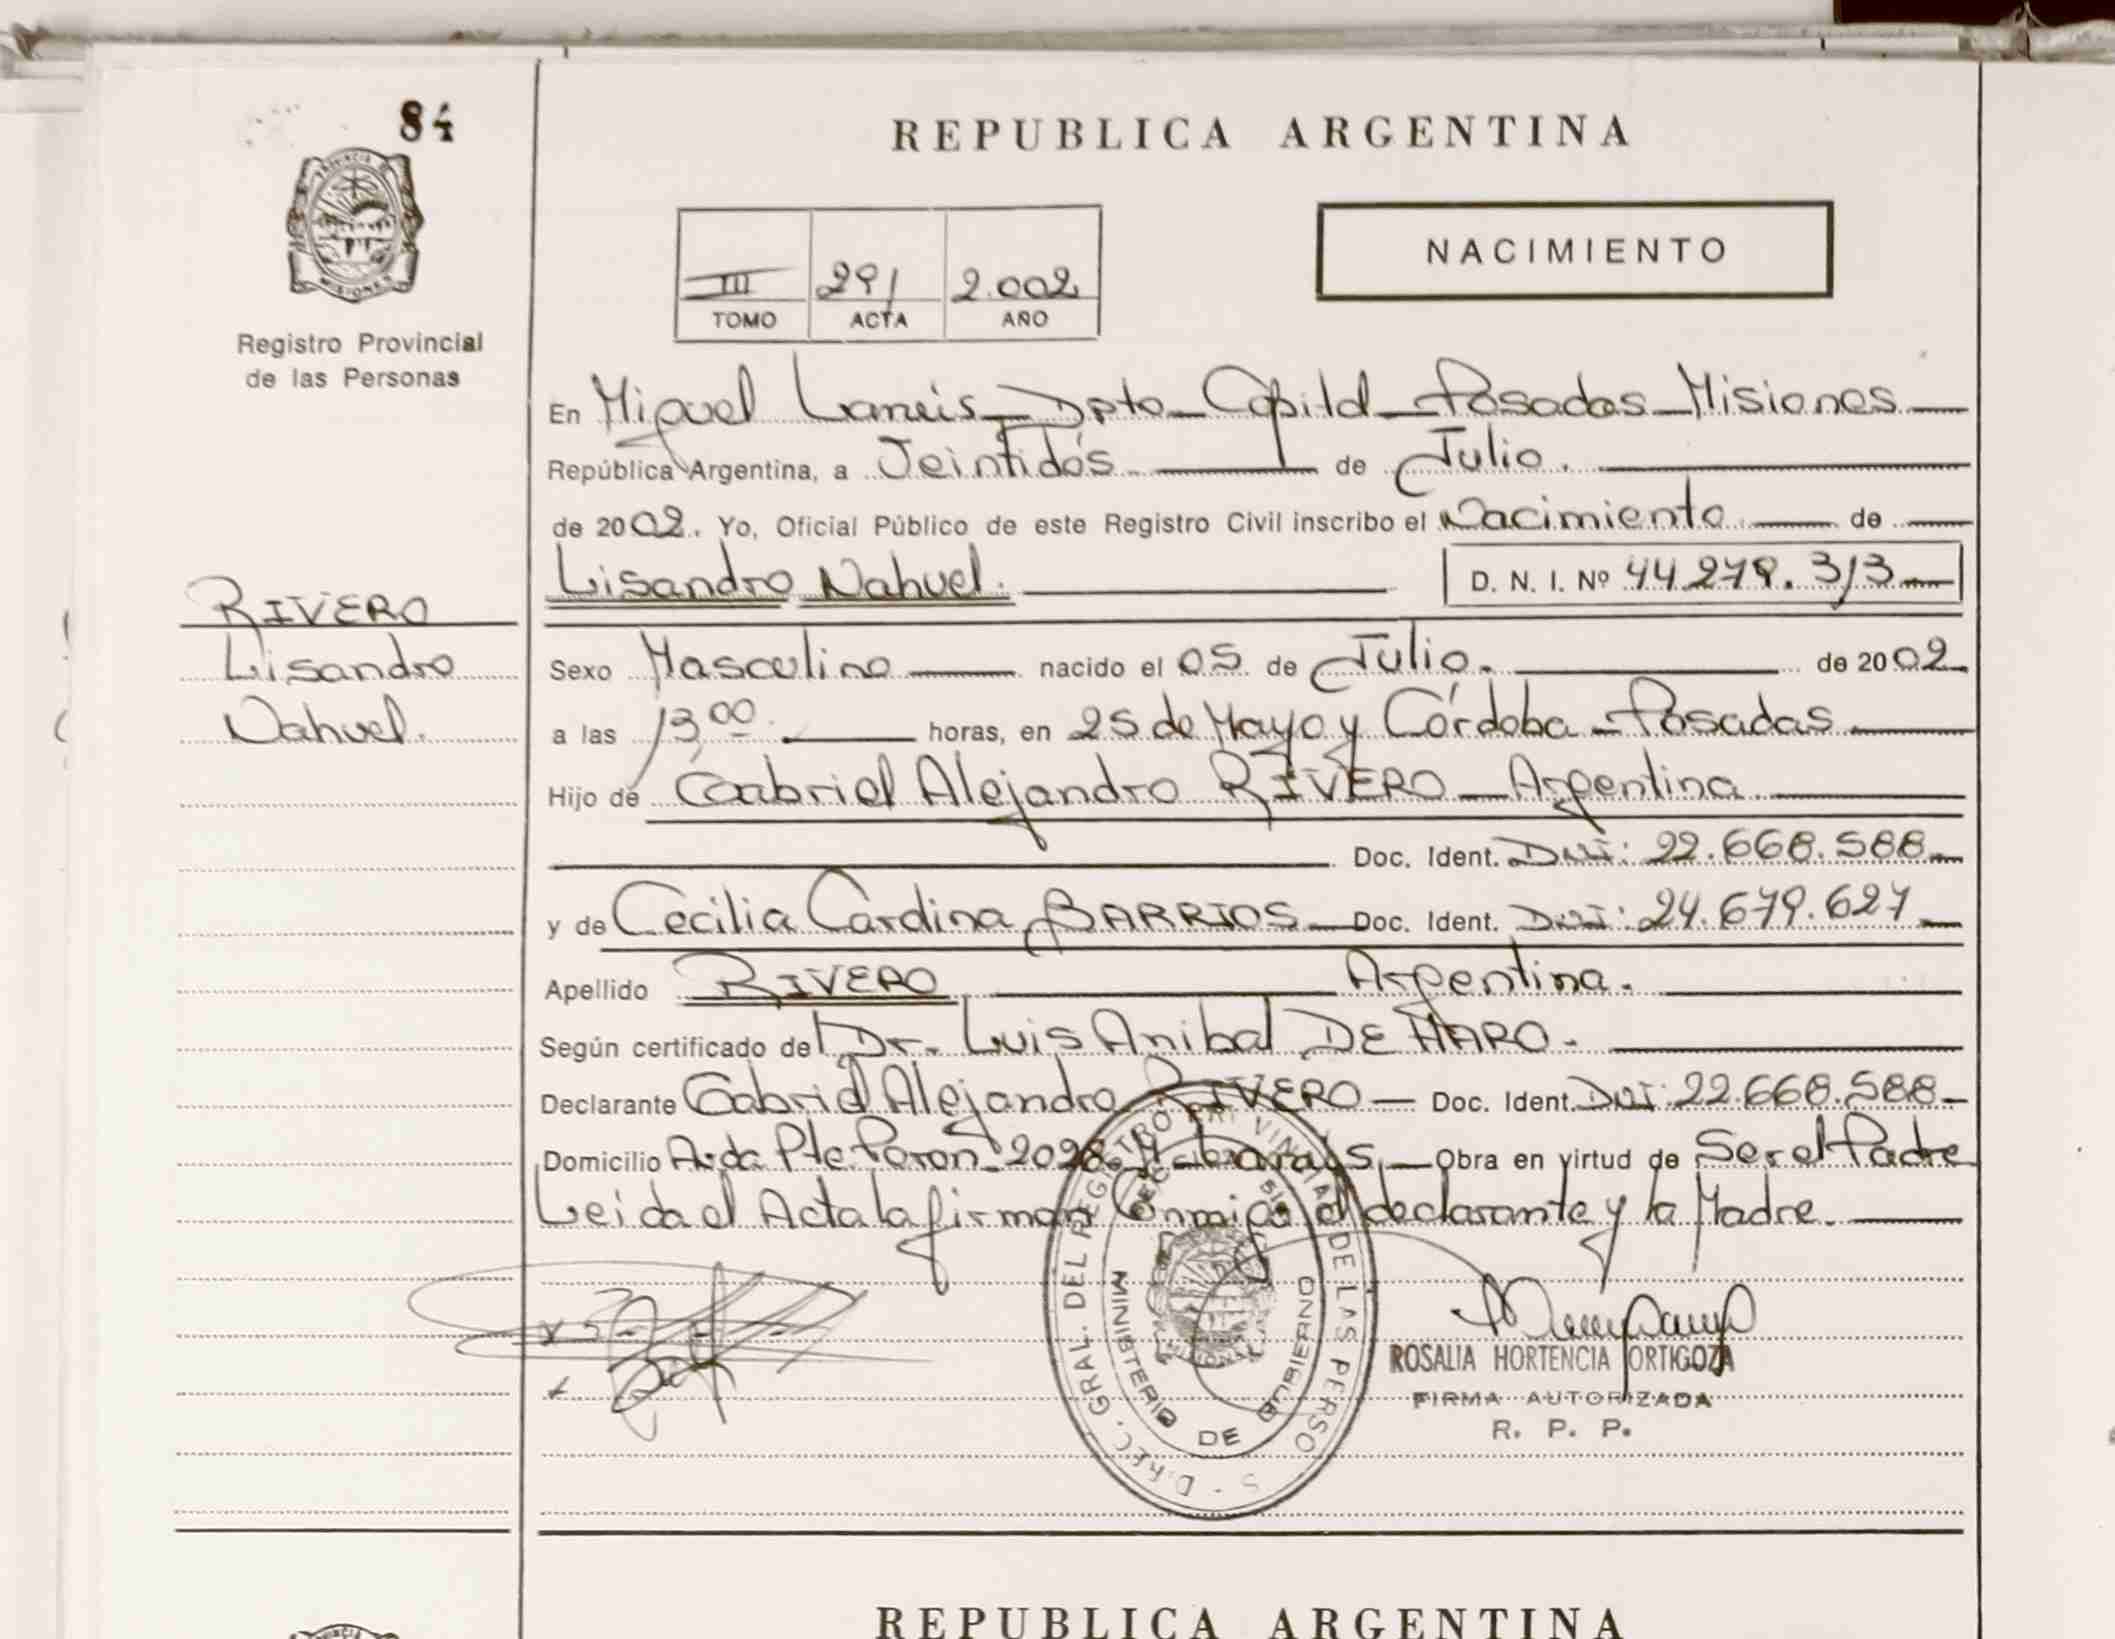 84
REPUBLICA ARGENTINA
NACIMIENTO
III 291 2.002
TOMO ACTA AÑO
Registro Provincial
de las Personas
En Miguel Laneis Dpto Capital Posadas Misiones
República Argentina, a Veintidós de Julio.
de 2002. Yo, Oficial Público de este Registro Civil inscribo el Nacimiento de
Lisandro Nahuel. D. N. I. Nº 44.279.313
RIVERO
Lisandro
Nahuel.
Sexo Masculino nacido el 05 de Julio. de 2002
a las 13,00 horas, en 25 de Mayo y Córdoba - Posadas
Hijo de Gabriel Alejandro RIVERO - Argentina
Doc. Ident. DNI: 22.668.588
y de Cecilia Carolina BARRIOS Doc. Ident. DNI: 24.679.627
Apellido RIVERO Argentina.
Según certificado de Dr. Luis Anibal DE HARO.
Declarante Gabriel Alejandro RIVERO Doc. Ident. DNI: 22.668.588
Domicilio Avda Pte Peron 2028 Obra en virtud de Ser el Padre
Leida el Acta la firman Conmigo el declarante y la Madre.
DIREC. GRAL. DEL REGISTRO PROVINCIAL DE LAS PERSONAS
MINISTERIO DE GOBIERNO
MISIONES
ROSALIA HORTENCIA ORTIGOZA
FIRMA AUTORIZADA
R. P. P.
REPUBLICA ARGENTINA